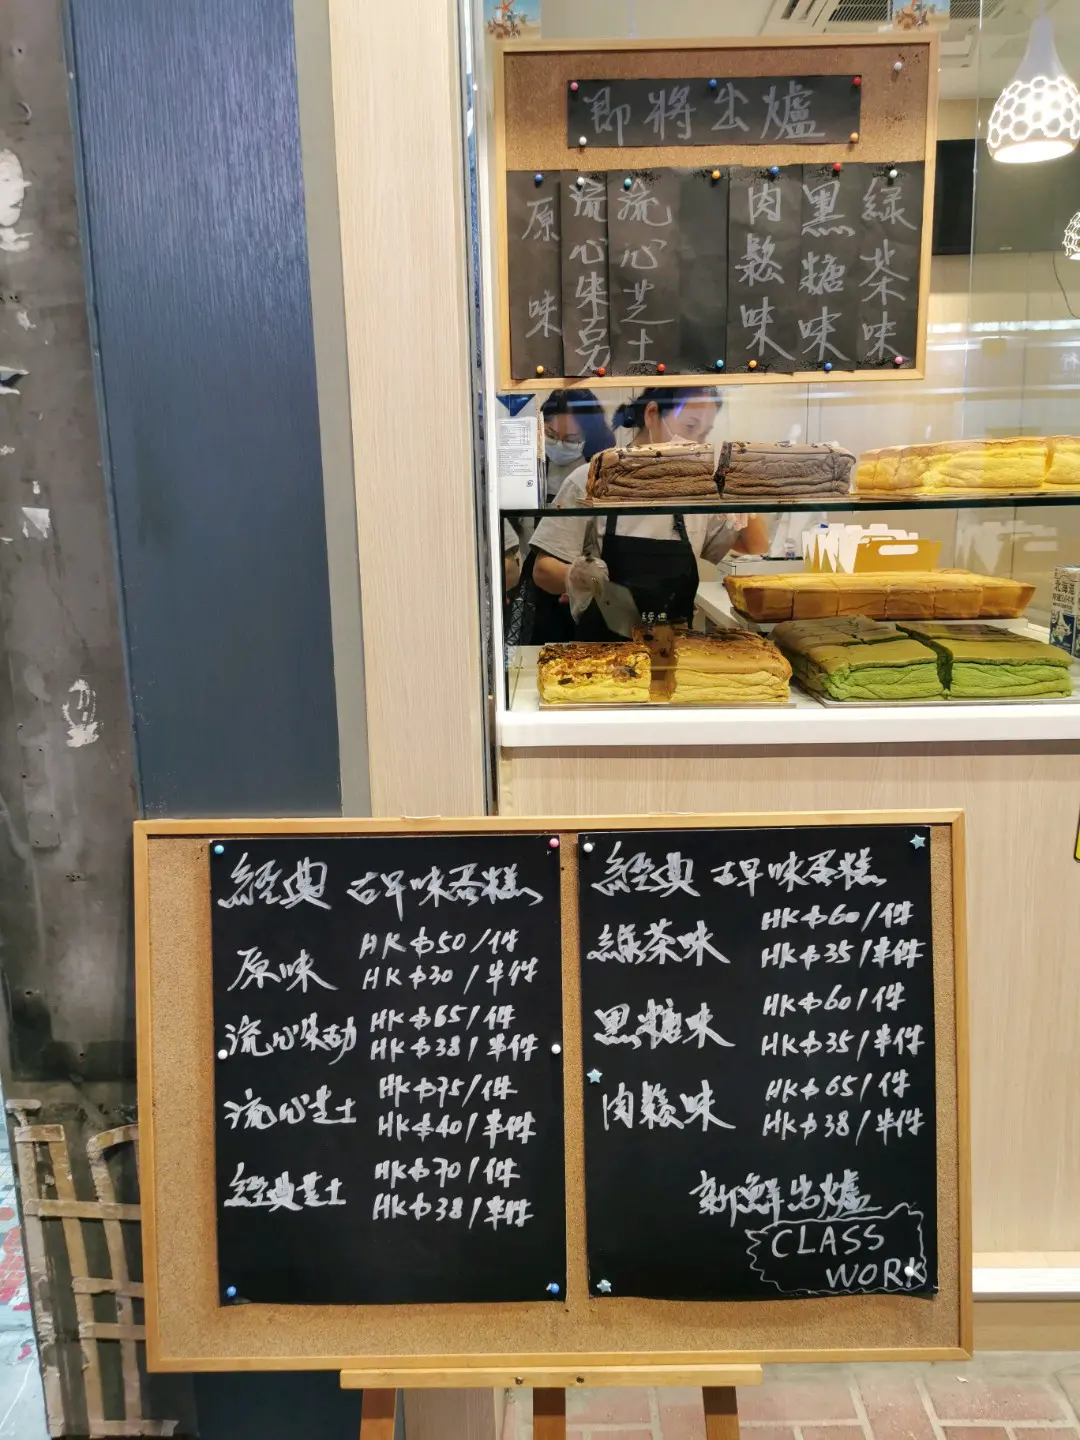 即將出爐
原味
流心朱古力
流心芝士
肉鬆味
黑糖味
綠茶味
北海道
經典 古早味蛋糕
原味 HK$50/件
HK$30/半件
流心朱古力 HK$65/件
HK$38/半件
流心芝士 HK$75/件
HK$40/半件
經典芝士 HK$70/件
HK$38/半件
經典 古早味蛋糕
綠茶味 HK$60/件
HK$35/半件
黑糖味 HK$60/件
HK$35/半件
肉鬆味 HK$65/件
HK$38/半件
新鮮出爐
CLASS
WORK